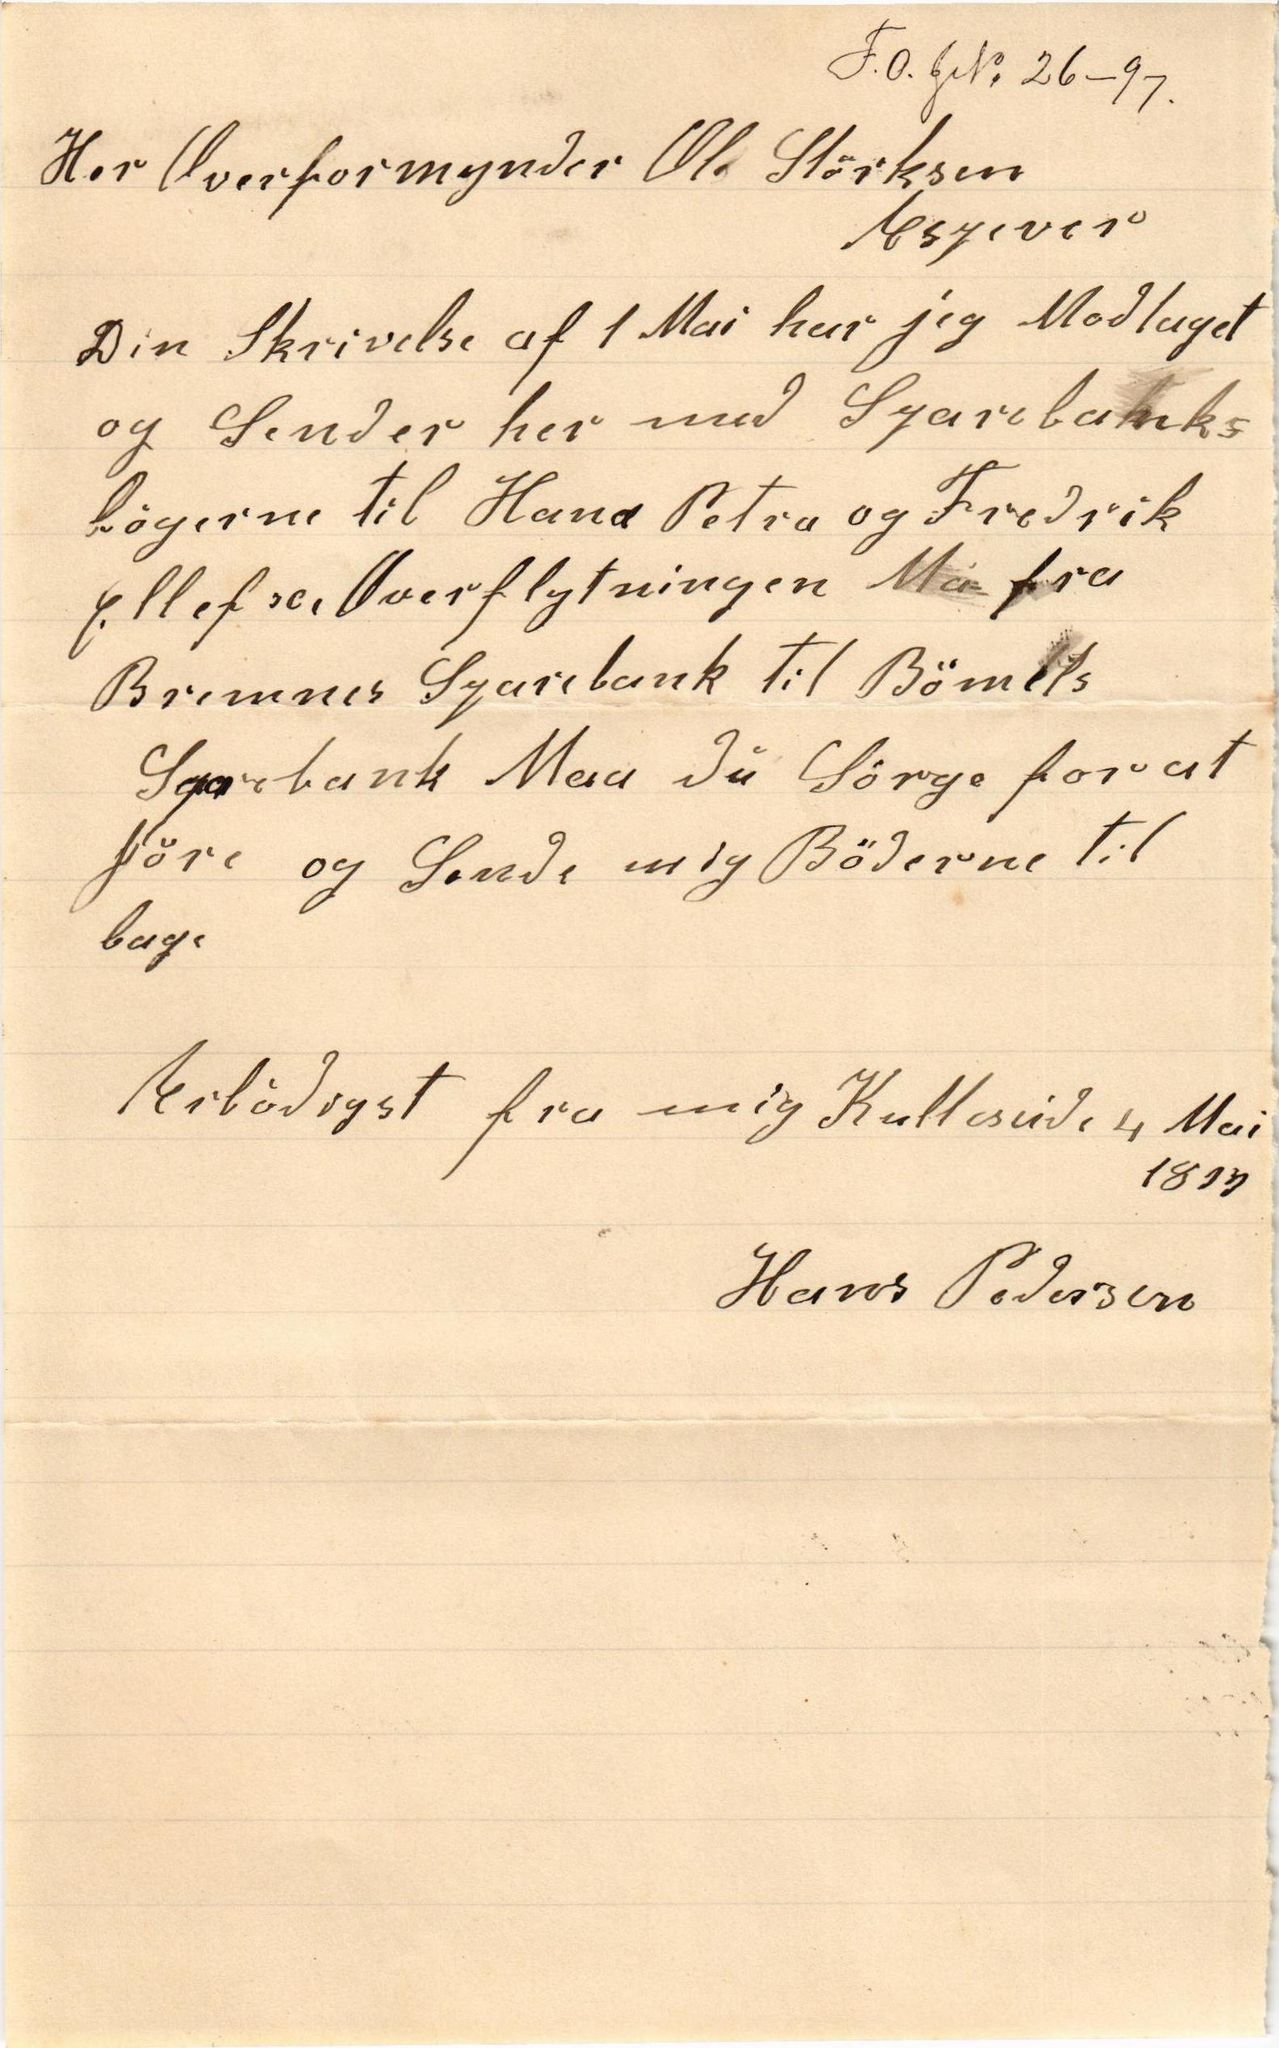 F.O. JN. 26-97.
Her Overformynder Ole Störksen
Espever
Din Skrivelse af 1 Mai har jeg Modtaget
og Sender her med Sparebanks
bögerne til Hana Petra og Fredrik
Ellefse, Overflytningen Ma fra
Bremnes Sparebank til Bömels
Sparebank Maa du Sörge for at
före og Sende mig Böderne til
bage
Erbödigst fra mig Kulleseide 4 Mai
Hans Pedersen